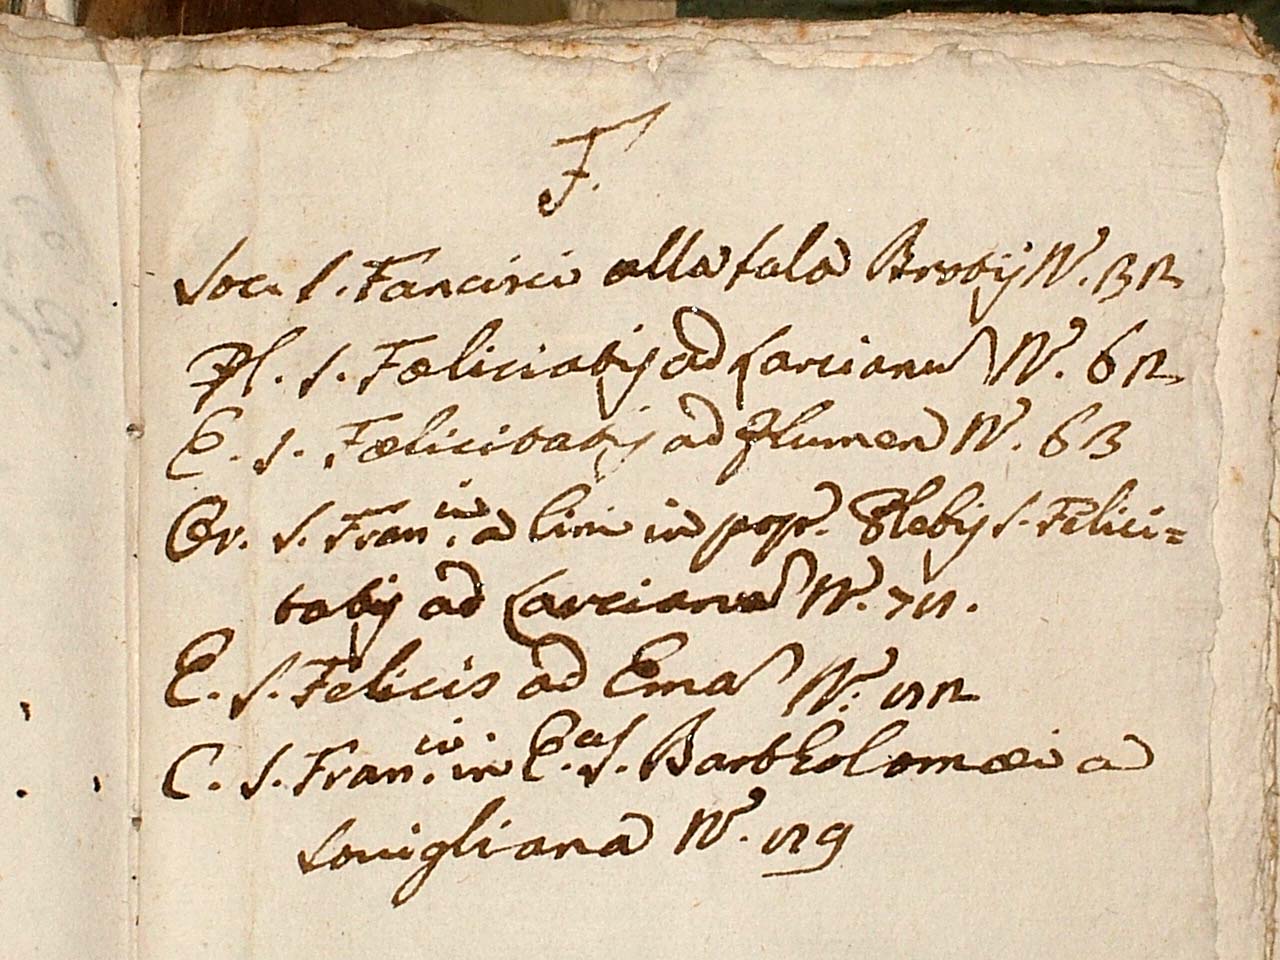 F.
Soc. S. Fancisci alla fala Brobij N.° 32
Pl. S. Fœlicitatij ad Larcianu N.° 62
E. S. Fœlicitatij ad flumen N.° 63
Or. S. Fran.ci a Cini in pop.° Plebij S. Felici=
tatij ad Larcianu N.° 71.
E. S. Felicis ad Ema N.° 112
C. S. Fran.ci in E.ca S. Bartholomæi a
Sovigliana N.° 119